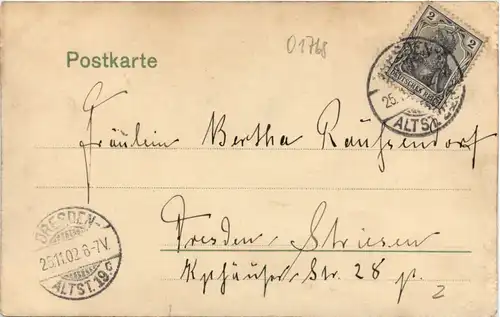 01768
2
Postkarte
DRESDEN
DEUTSCHES REICH
25.
ALTST.
Fräulein Bertha Rauffendorf
DRESDEN-
25.11.02.6-7V.
ALTST.19c
Dresden-Striesen
Kyffhäuser Str. 28 p.
2